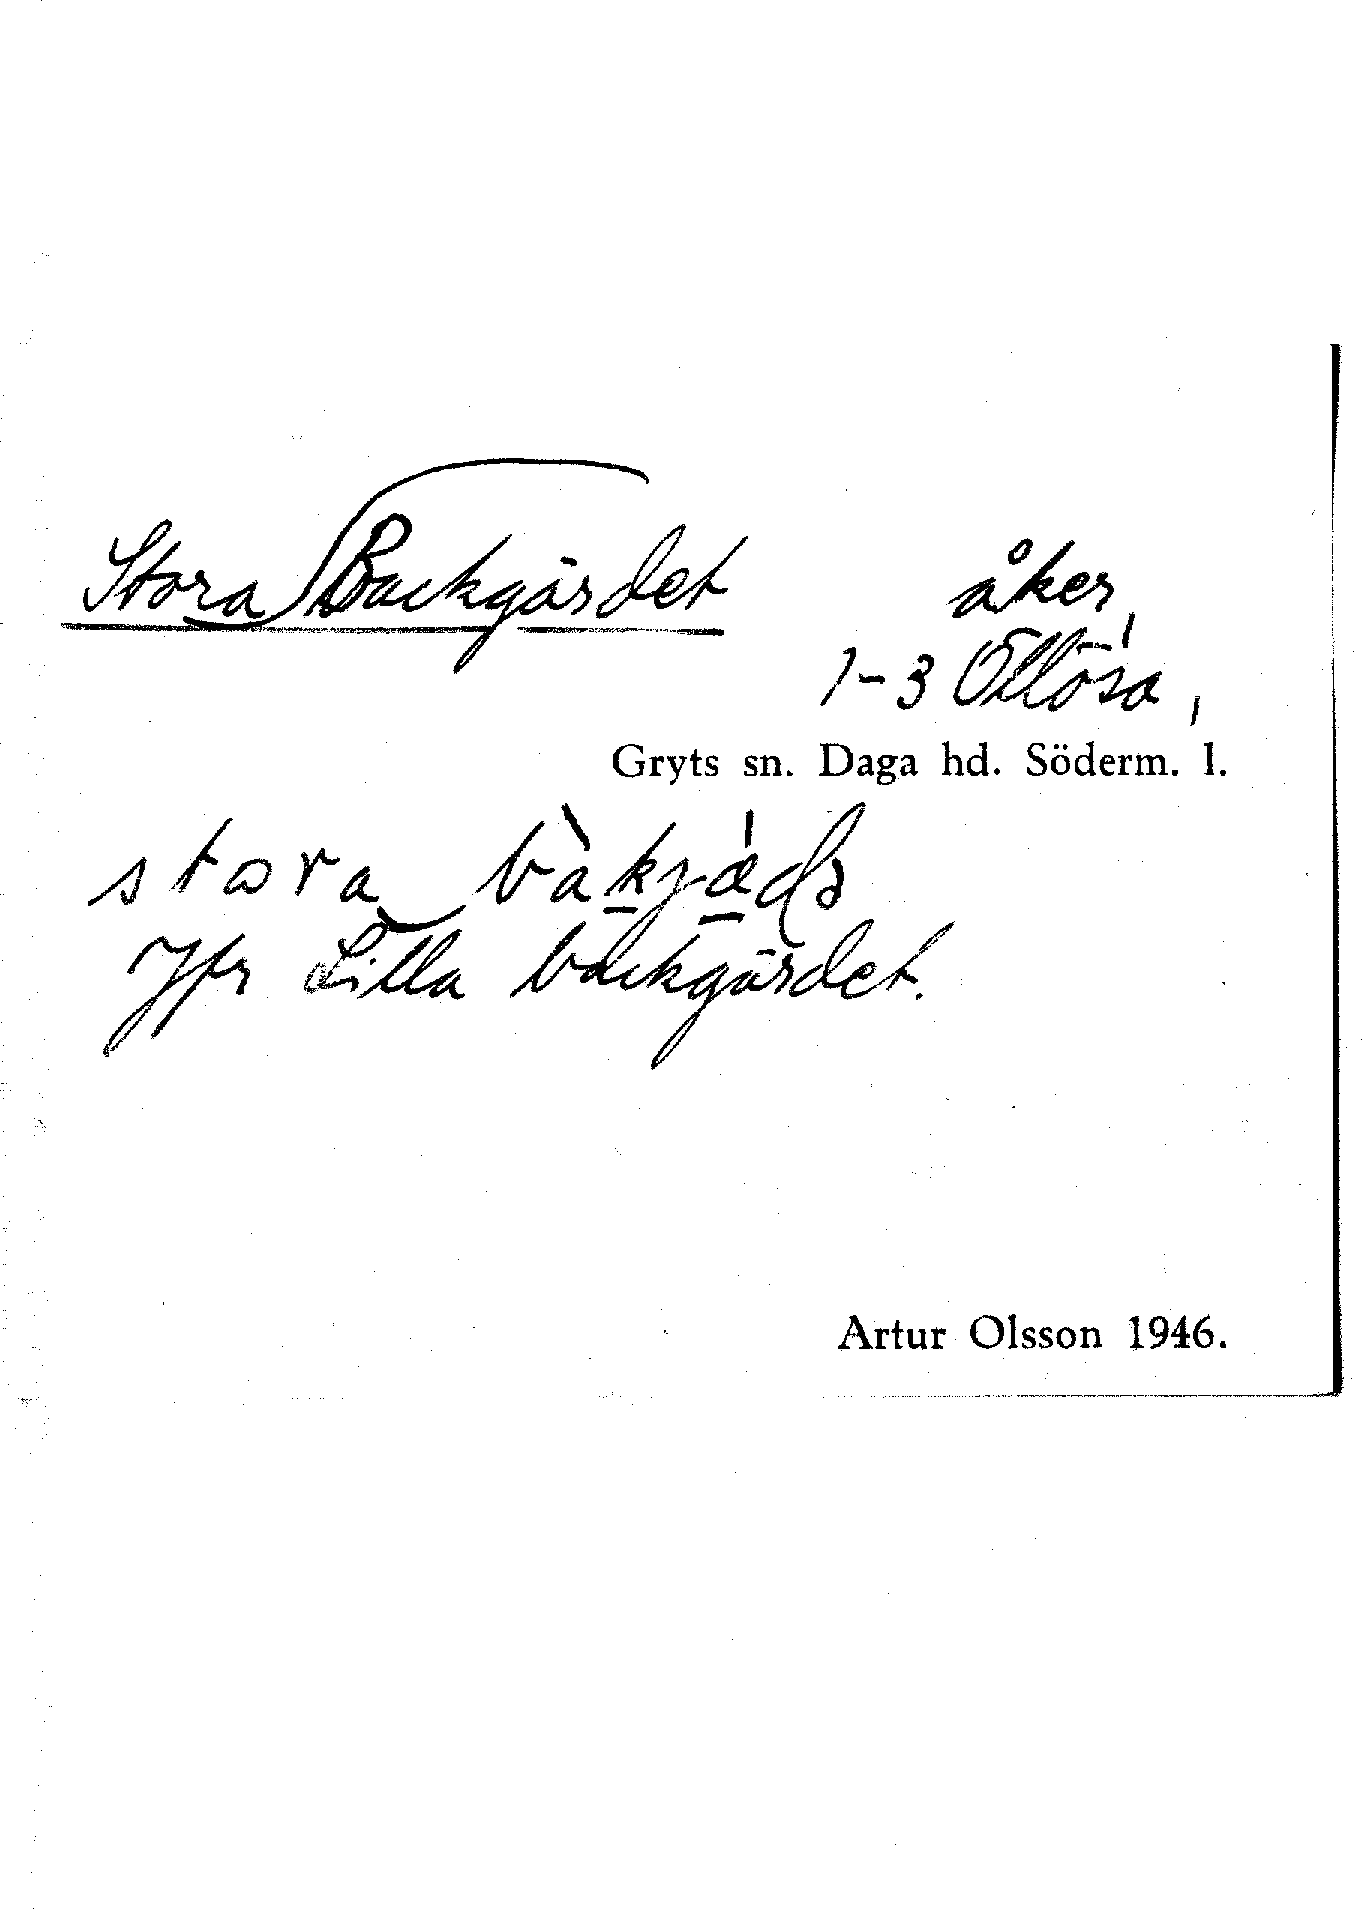 Stora Backgärdet åker,
1-3 Ollösa,
Gryts sn. Daga hd. Söderm. l.
stora
Jfr Lilla backgärdet.
Artur Olsson 1946.